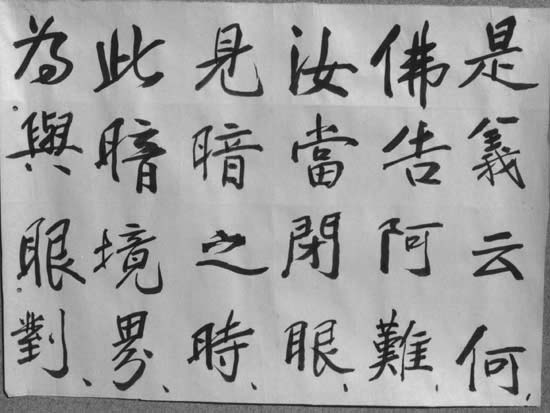 是義云何、
佛告阿難、
汝當閉眼、
見暗之時、
此暗境界、
為與眼對、